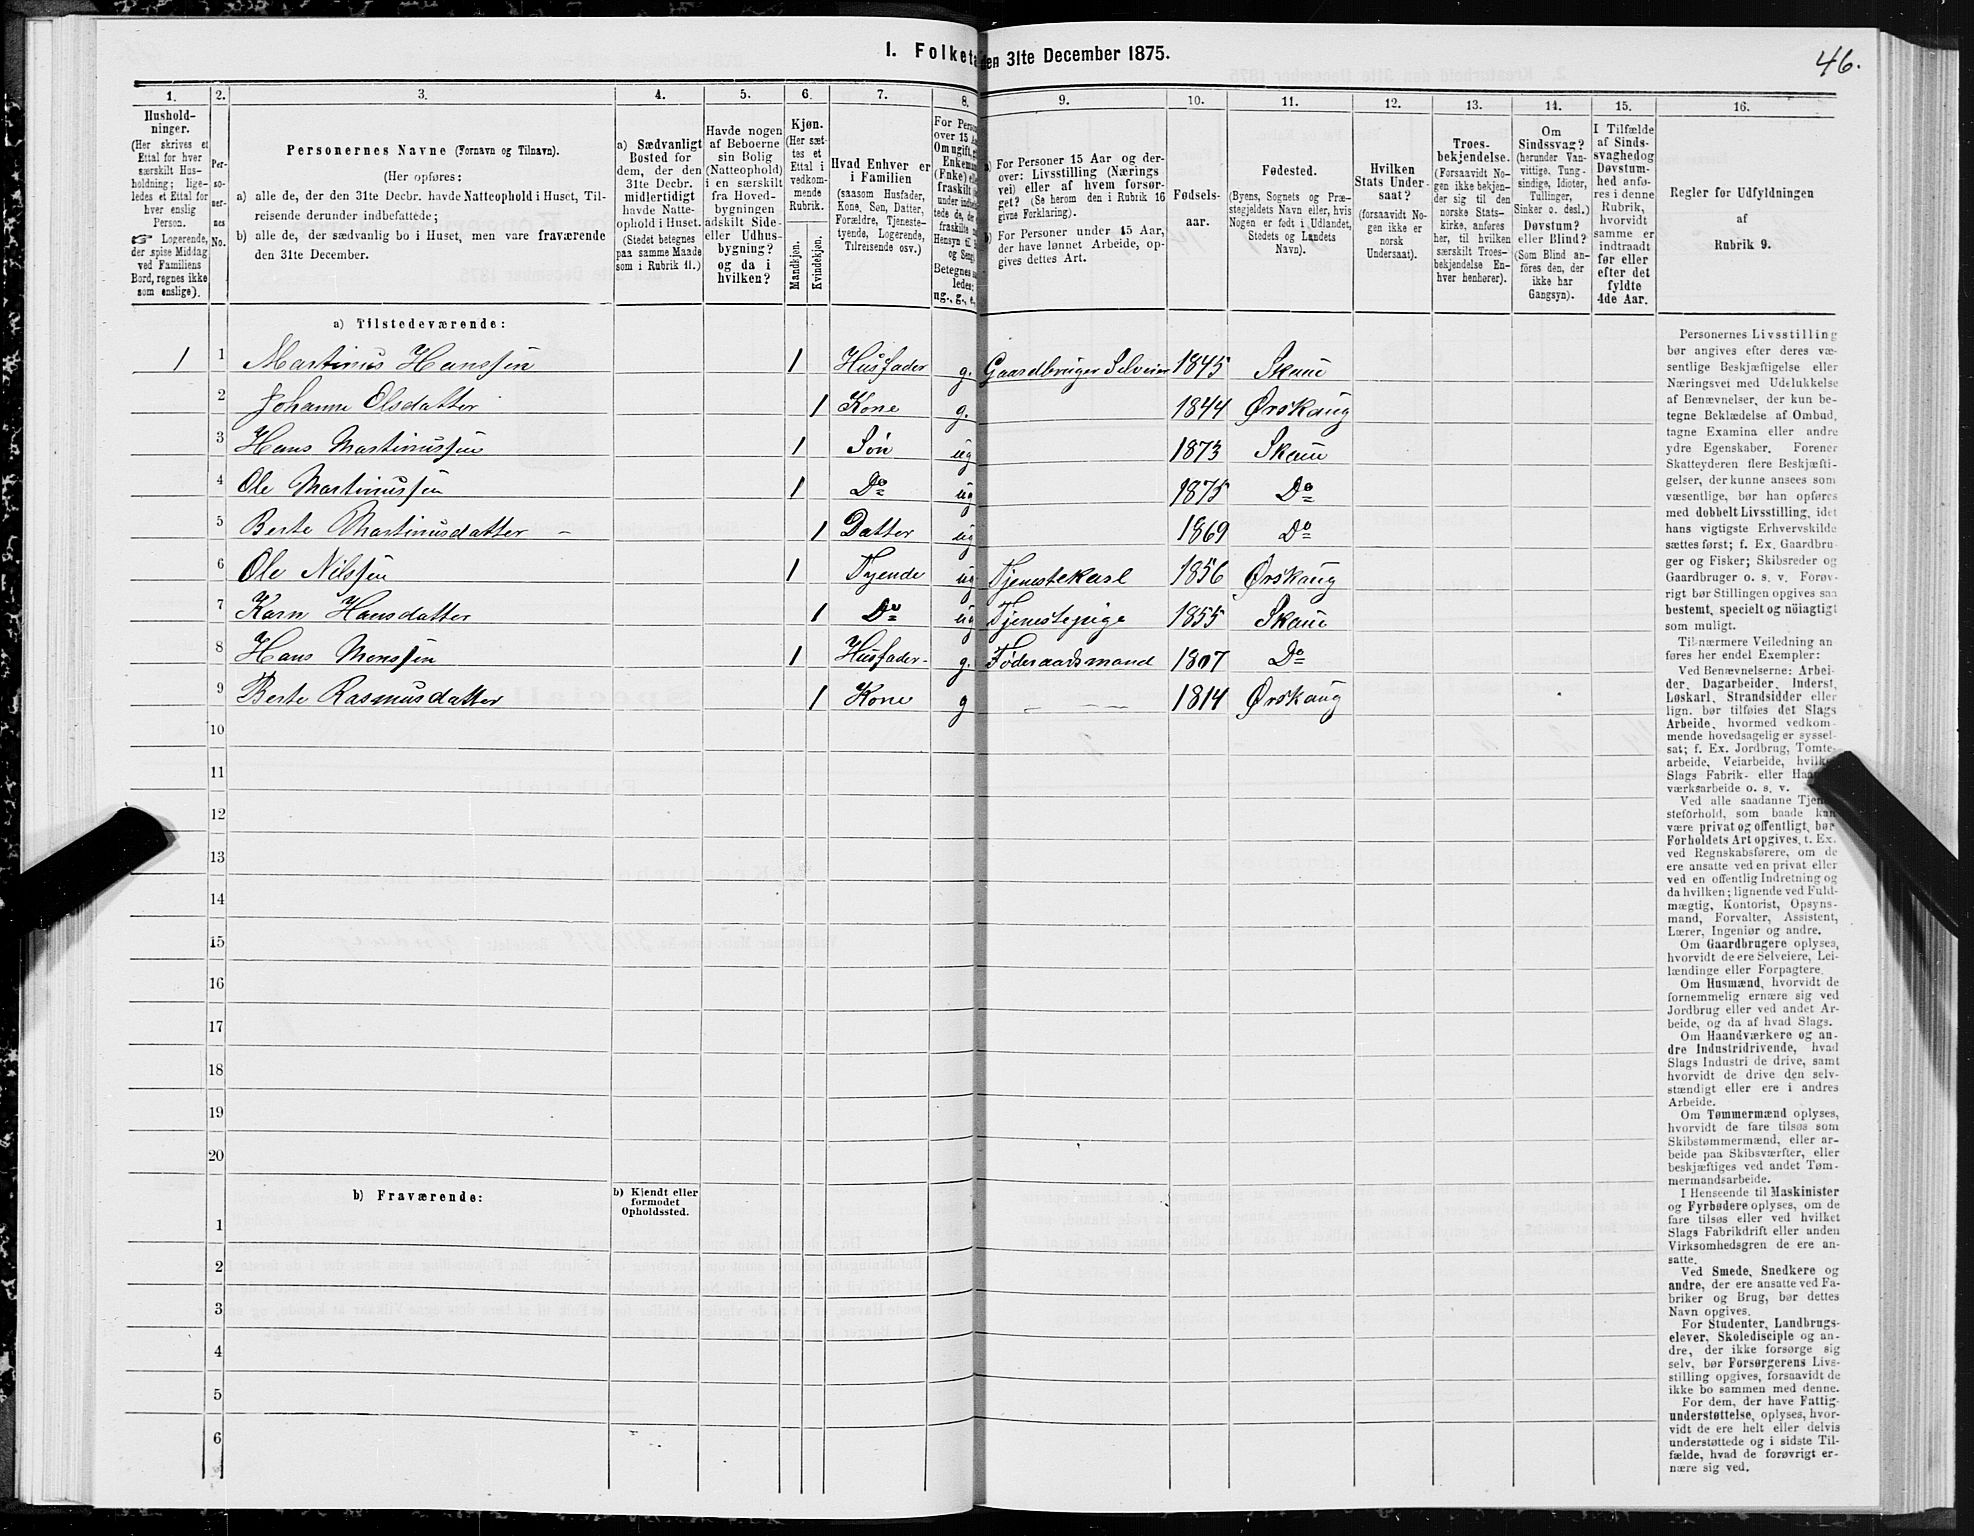 I. Folketæ den 31te December 1875.
46.
1. 2. 3. 4. 5. 6. 7. 8. 9. 10. 11. 12. 13. 14. 15. 16.
Hushold-
ninger.
(Her skrives et
Ettal for hver
særskilt Hus-
holdning; lige-
ledes et Ettal for
hver enslig
Person.
☞ Logerende,
der spise Middag
ved Familiens
Bord, regnes ikke
som enslige).
Per-
so-
ner-
nes
No.
Personernes Navne (Fornavn og Tilnavn).
(Her opføres:
a) alle de, der den 31te Decbr. havde Natteophold i Huset, Til-
reisende derunder indbefattede;
b) alle de, der sædvanlig bo i Huset, men vare fraværende
den 31te December.
a) Sædvanligt
Bosted for
dem, der den
31te Decbr.
midlertidigt
havde Natte-
ophold i Huset.
(Stedet betegnes
paa samme Maade
som i Rubrik 11.)
Havde nogen
af Beboerne
sin Bolig
(Natteophold)
i en særskilt
fra Hoved-
bygningen
adskilt Side-
eller Udhus-
bygning?
og da i
hvilken?
Kjøn.
(Her sæt-
tes et
Ettal i
vedkom-
mende
Rubrik.
Mandkjøn.
Kvindekjøn.
Hvad Enhver er
i Familien
(saasom Husfader,
Kone, Søn, Datter,
Forældre, Tjeneste-
tyende, Logerende,
Tilreisende osv.)
For Perso
over 15 Aa
Om ugift, g
Enkema
(Enke) elle
fraskilt
under indbe
tede de, de
fraskilte
Hensyn til
og Seng
Betegnes
ledes:
ug., g., e.
a) For Personer 15 Aar og der-
over: Livsstilling (Nærings
vei) eller af hvem forsør-
get? (Se herom den i Rubrik 16
givne Forklaring).
b) For Personer under 15 Aar,
der have lønnet Arbeide, op-
gives dettes Art.
Fødsels-
aar.
Fødested.
(Byens, Sognets og Præ-
stegjeldets Navn eller, hvis
Nogen er født i Udlandet,
Stedets og Landets
Navn).
Hvilken
Stats Under-
saat?
(forsaavidt No-
gen ikke er
norsk
Undersaat).
Troes-
bekjendelse.
(Forsaavidt No-
gen ikke bekjen-
der sig til den
norske Stats-
kirke, anføres
her, til hvilken
særskilt Troes-
bekjendelse En-
hver henhører).
Om
Sindssvag?
(herunder Van-
vittige, Tung-
sindige, Idioter,
Tullinger,
Sinker o. desl.)
Døvstum?
eller Blind?
(Som Blind an-
føres den, der
ikke har
Gangsyn).
I Tilfælde
af Sinds-
svaghed og
Døvstum-
hed anfø-
res i denne
Rubrik,
hvorvidt
samme er
indtraadt
før eller
efter det
fyldte
4de Aar.
Regler for Udfyldningen
af
Rubrik 9.
a) Tilstedeværende:
1 1 Martinus Hanssen 1 Husfader g. Gaardbruger Selveier 1845 Skaue
2 Johanne Olsdatter 1 Kone g. 1844 Ørskaug
3 Hans Martinussen 1 Søn ug 1873 Skaue
4 Ole Martinussen 1 Do ug 1875 Do
5 Berte Martinusdatter - 1 Datter ug 1869 Do
6 Ole Nilssen 1 Tyende ug Tjenestekarl 1856 Ørskaug
7 Karn Hansdatter 1 Do ug Tjenestepige 1855 Skaue
8 Hans Monssen 1 Husfader g. Føderaadsmand 1807 Do
9 Berte Rasmusdatter 1 Kone g — — — 1814 Ørskaug
10
11
12
13
14
15
16
17
18
19
20
b) Fraværende:
b) Kjendt eller
formodet
Opholdssted.
1
2
3
4
5
6
Personernes Livsstilling
bør angives efter deres væ-
sentlige Beskjæftigelse eller
Næringsvei med Udelukkelse
af Benævnelser, der kun be-
tegne Beklædelse af Ombud,
tagne Examina eller andre
ydre Egenskaber. Forener
Skatteyderen flere Beskjæfti-
gelser, der kunne ansees som
væsentlige, bør han opføres
med dobbelt Livsstilling, idet
hans vigtigste Erhvervskilde
sættes først; f. Ex. Gaardbru-
ger og Fisker; Skibsreder og
Gaardbruger o. s. v. Forøv-
rigt bør Stillingen opgives saa
bestemt, specielt og nöiagtigt
som muligt.
Til nærmere Veiledning an
føres her endel Exempler:
Ved Benævnelserne: Arbei-
der, Dagarbeider, Inderst,
Løskarl, Strandsidder eller
lign. bør tilføies det Slags
Arbeide, hvormed vedkom-
mende hovedsagelig er syssel-
sat; f. Ex. Jordbrug, Tomte-
arbeide, Veiarbeide, hvilket
Slags Fabrik- eller Haand-
værksarbeide o. s. v.
Ved alle saadanne Tjene-
steforhold, som baade kan
være privat og offentligt, bør
Forholdets Art opgives, t. Ex.
ved Regnskabsførere, om de
ere ansatte ved en privat eller
ved en offentlig Indretning og
da hvilken; lignende ved Fuld-
mægtig, Kontorist, Opsyns-
mand, Forvalter, Assistent,
Lærer, Ingeniør og andre.
Om Gaardbrugere oplyses,
hvorvidt de ere Selveiere, Lei-
lændinge eller Forpagtere.
Om Husmænd, hvorvidt de
fornemmelig ernære sig ved
Jordbrug eller ved andet Ar-
beide, og da af hvad Slags.
Om Haandværkere og an-
dre Industridrivende, hvad
Slags Industri de drive, samt
hvorvidt de drive den selv-
stændigt eller ere i andres
Arbeide.
Om Tømmermænd oplyses,
hvorvidt de fare tilsøs som
Skibstømmermænd, eller ar-
beide paa Skibsværfter, eller
beskjæftiges ved andet Tøm-
mermandsarbeide.
I Henseende til Maskinister
og Fyrbødere oplyses, om de
fare tilsøs eller ved hvilket
Slags Fabrikdrift eller anden
Virksomhedsgren de ere an-
satte.
Ved Smede, Snedkere og
andre, der ere ansatte ved Fa-
briker og Brug, bør dettes
Navn opgives.
For Studenter, Landbrugs-
elever, Skoledisciple og an-
dre, der ikke forsørge sig
selv, bør Forsørgerens Livs-
stilling opgives, forsaavidt de
ikke bo sammen med denne.
For dem, der have Fattig-
understøttelse, oplyses, hvor-
vidt de ere helt eller delvis
understøttede og i sidste Til-
fælde, hvad de forøvrigt er-
nære sig ved.